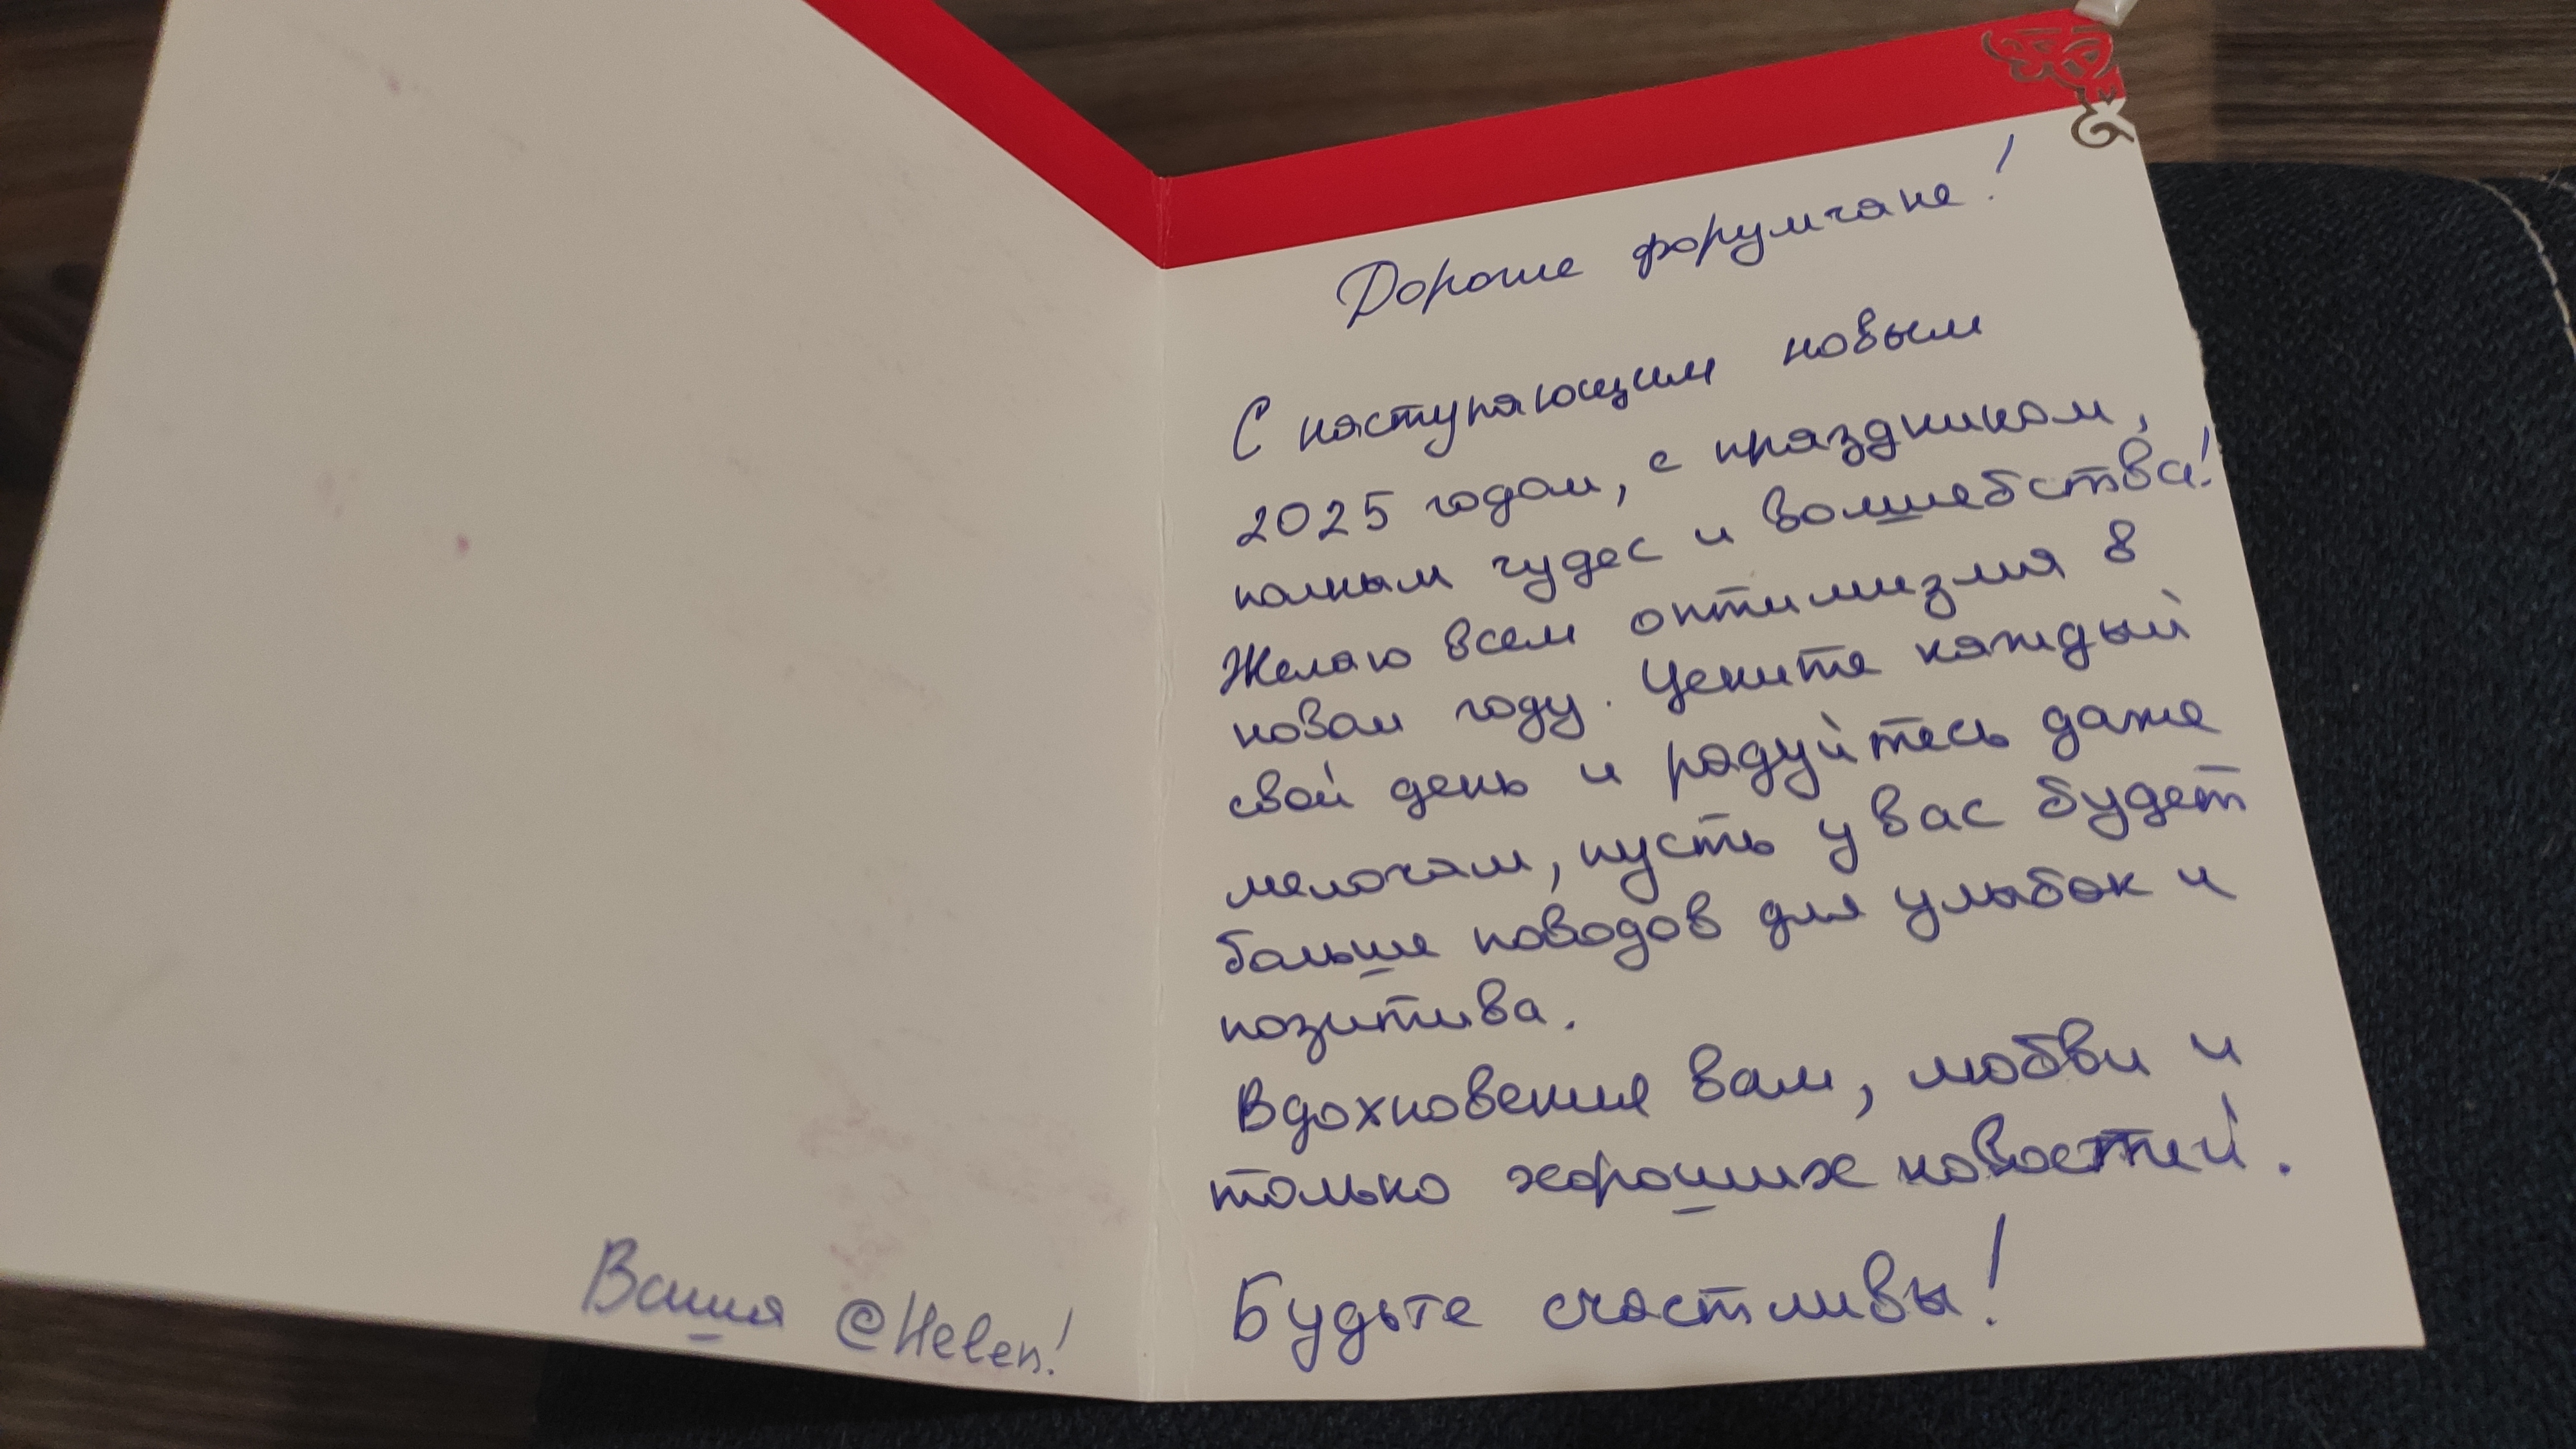 Дорогие форумчане!
С наступающим новым
2025 годом, с праздником,
полным чудес и волшебства!
Желаю всем оптимизма в
новом году. Цените каждый
свой день и радуйтесь даже
мелочам, пусть у вас будет
больше поводов для улыбок и
позитива.
Вдохновения вам, любви и
только хороших новостей.
Будьте счастливы!
Ваша @Helen!